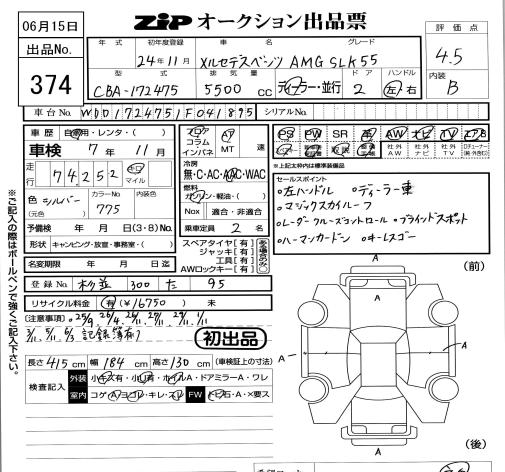 06月15日
ZiP オークション出品票
出品No.
374
年式 初年度登録 車名 グレード
24年11月 メルセデスベンツ AMG SLK55
型式 排気量 ドア ハンドル
CBA-172475 5500 cc ディーラー・並行 2 左 右
評価点
4.5
内装
B
車台No. WDD1724751F041895 シリアルNo.
車歴 自家用・レンタ・( )
車検 7年 11月
走行 74,252 キロ マイル
色 シルバー (元色) カラーNo 775 内装色
予備検 年 月 日 (3・8) No.
形状 キャンピング・放宣・事務室・( )
名変期限 年 月 日迄
登録No. 杉並 300 た 95
リサイクル料金 有(¥16750) 未
フロア コラム インパネ AT MT 速
冷房
無・C・AC・AAC・WAC
燃料
ガソリン・軽油・( )
Nox 適合・非適合
乗車定員 2 名
スペアタイヤ [有]
ジャッキ [有]
工具 [有]
AWロックキー [有]
PS PW SR 革 AW ナビ TV エアB
社外AW 社外ナビ 社外TV
※上記太枠内は標準装備品
セールスポイント
○左ハンドル ○ディーラー車
○マジックスカイルーフ
○レーダークルーズコントロール ○ブラインドスポット
○ハーマンカードン ○キーレスゴー
[注意事項] 25/9 26/4 26/11 27/11 29/11 1/11
3/11 5/11 6/3 記録簿有り
初出品
長さ 415 cm 幅 184 cm 高さ 130 cm (車検証上の寸法)
検査記入 外装 小キズ有・小凹有・ホイルA・ドアミラーA・ワレ
室内 コゲA・ヨゴレ・キレ・スレ FW トビ石・A・×要ス
※ご記入の際はボールペンで強くご記入下さい。
(前)
A
A
A
A
(後)